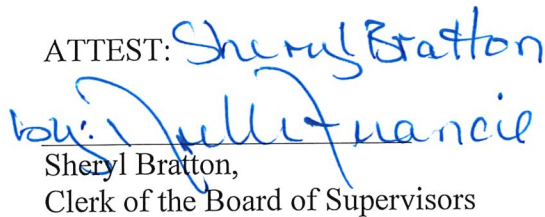 ATTEST: Sheryl Bratton
by:
Sheryl Bratton,
Clerk of the Board of Supervisors